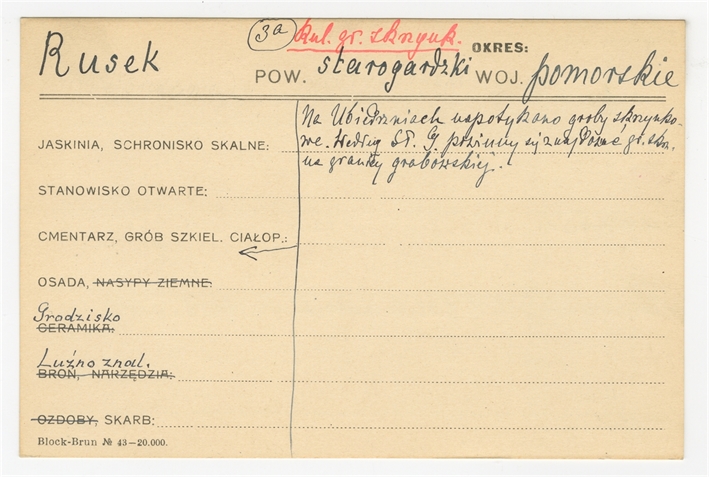 Rusek
3a kul. gr. skrzynk. OKRES:
POW. starogardzki WOJ. pomorskie
Na Ubiedrzniach napotykano groby skrzynko-
we. Według Sł. G. powinny się znajdować gr. skn.
na granicy grabowskiej.
JASKINIA, SCHRONISKO SKALNE:
STANOWISKO OTWARTE:
CMENTARZ, GRÓB SZKIEL. CIAŁOP.:
OSADA, NASYPY ZIEMNE:
Grodzisko
CERAMIKA:
Luźno znal.
BROŃ, NARZĘDZIA:
OZDOBY, SKARB:
Block-Brun № 43—20.000.